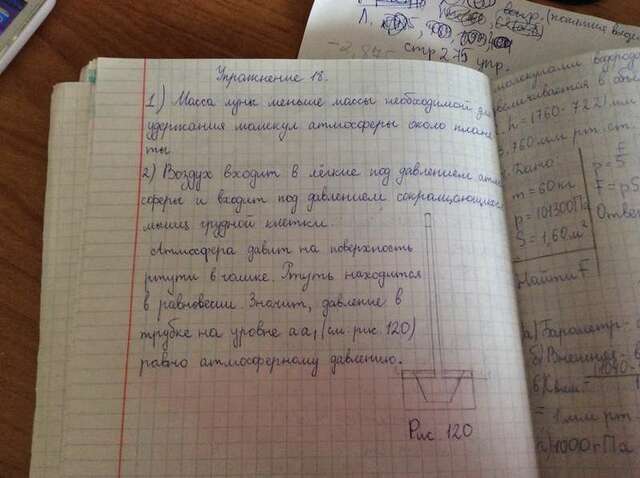 вопр. (показыв
Л.
-2,84- стр 275 упр.
Упражнение 18.
1) Масса луны меньше массы необходимой для
удержания молекул атмосферы около плане-
ты
2) Воздух входит в лёгкие под давлением атмо
сферы и входит под давлением сокращающихся
мышц грудной клетки.
Атмосфера давит на поверхность
ртути в чашке. Ртуть находится
в равновесии. Значит, давление в
трубке на уровне аа₁ (см. рис. 120)
равно атмосферному давлению.
Рис. 120
молекулами водород
увеличивается в объ
h = (760 - 722) мм
760 мм рт. ст.
Дано
m = 60 кг
p = 101300 Па
S = 1,60 м²
Найти F
p = F/S
F = pS
Ответ
а) Барометр -
б) Внешняя -
в) Кпам =
= 1 мм рт.
1000 гПа